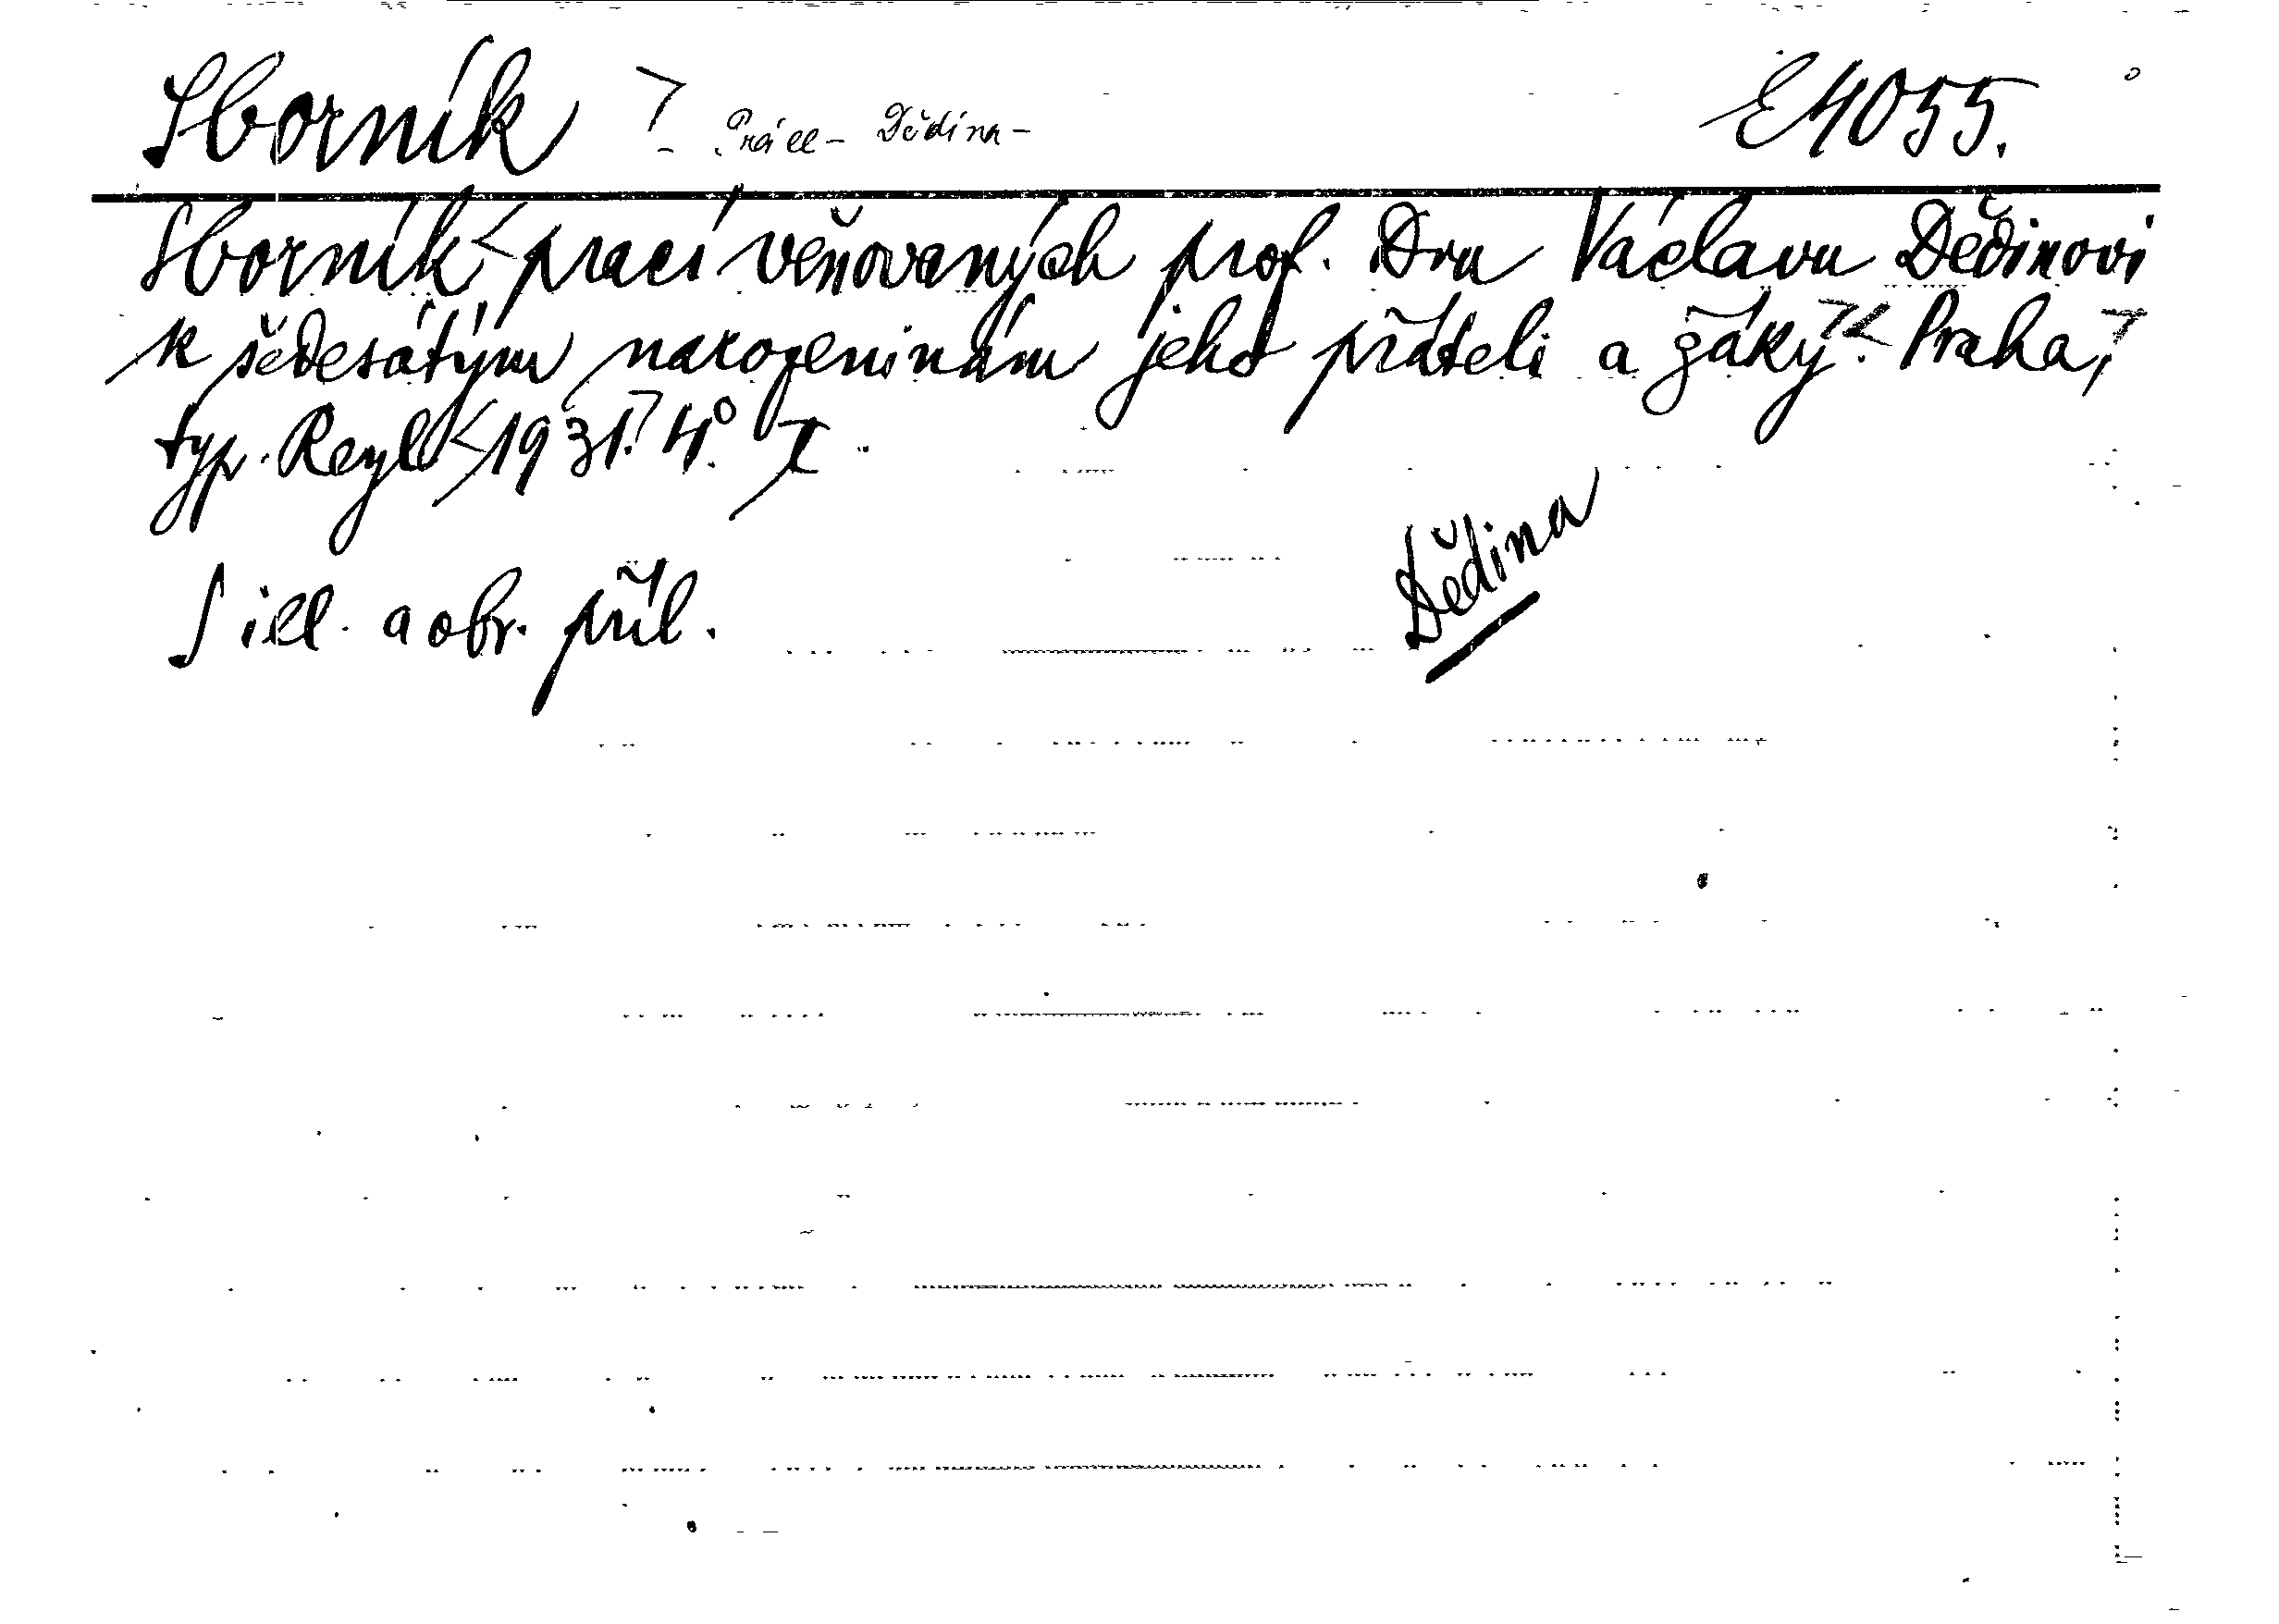 Sborník > Práce - Dědina - E 4055.
Sborník < prací věnovaných prof. Dru Václavu Dědinovi
k šedesátým narozeninám jeho přáteli a žáky >. < Praha, >
typ. Reyl < 1931. > 4°.
Dědina
S ill. a obr. příl.